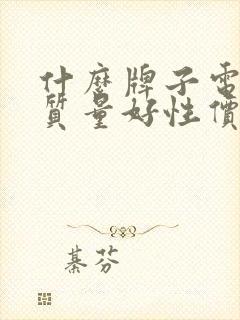 什麼牌子電
質量好性價
綦芬